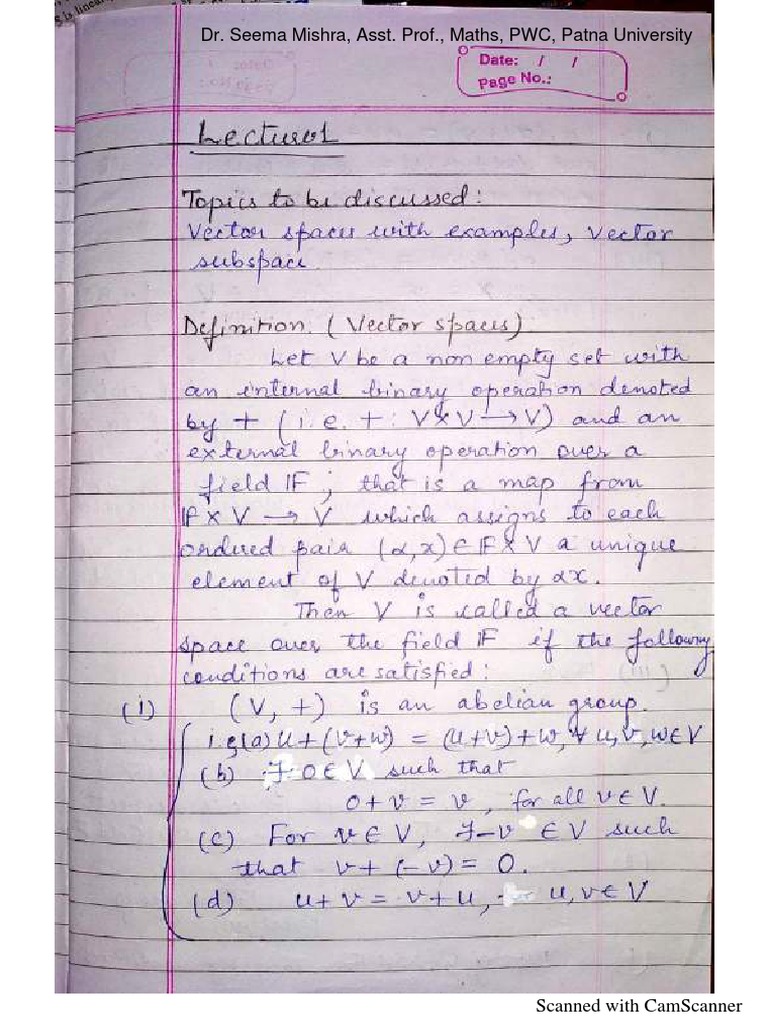 S is linear
Dr. Seema Mishra, Asst. Prof., Maths, PWC, Patna University
Date: / /
Page No.:
Lecture 1
Topics to be discussed:
Vector spaces with examples, vector
subspace.
Definition: (Vector spaces)
Let V be a non empty set with
an internal binary operation denoted
by + (i.e. +: V×V → V) and an
external binary operation over a
field IF; that is a map from
IF × V → V which assigns to each
ordered pair (α,x) ∈ IF × V a unique
element of V denoted by αx.
Then V is called a vector
space over the field IF if the following
conditions are satisfied:
(i) (V, +) is an abelian group.
i.e(a) u+(v+w) = (u+v)+w, ∀ u,v,w∈V
(b) ∃ 0∈V such that
0+v = v, for all v∈V.
(c) For v∈V, ∃ -v ∈V such
that v+(-v) = 0.
(d) u+v = v+u, u,v∈V
Scanned with CamScanner